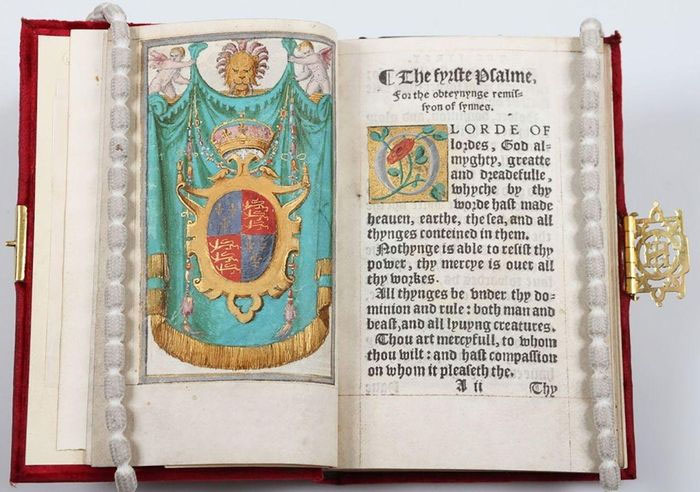 ¶ The fyrste Psalme,
For the obteynynge remis-
syon of synnes.
O LORDE OF
lordes, God al-
myghty, greatte
and dreadefulle,
whyche by thy
worde hast made
heauen, earthe, the sea, and all
thynges conteined in them.
Nothynge is able to resist thy
power, thy mercye is ouer all
thy workes.
All thynges be vnder thy do-
minion and rule: both man and
beast, and all lyuyng creatures.
Thou art mercyfull, to whom
thou wilt: and hast compassion
on whom it pleaseth the.
A ii Thy